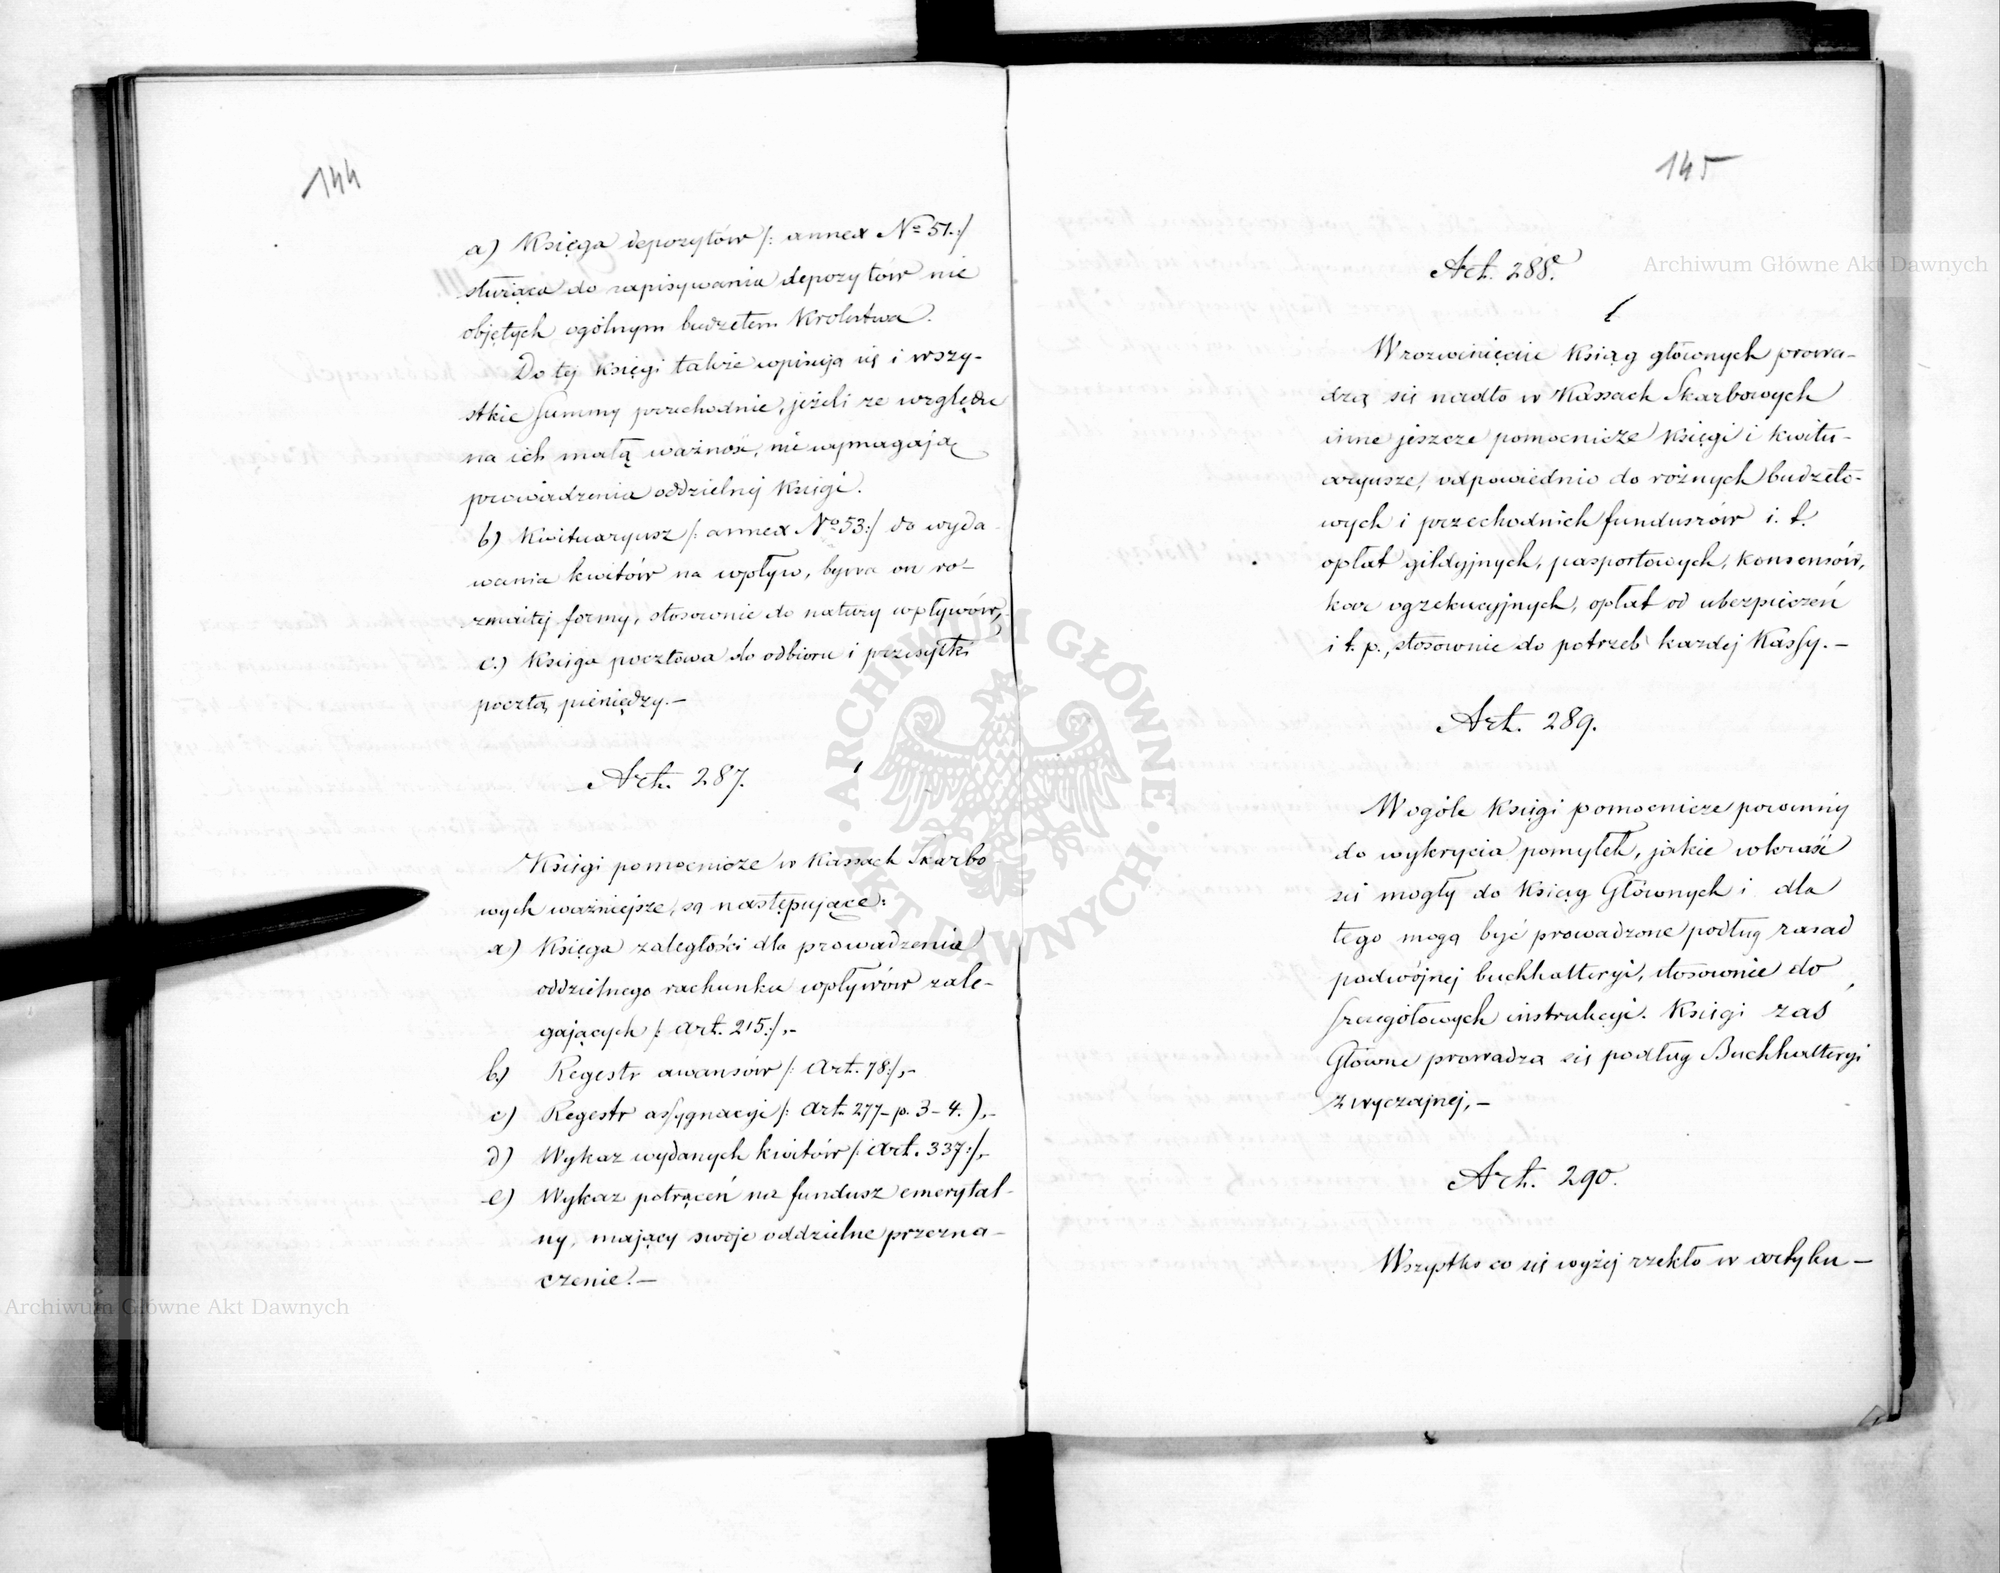 144
a) Księga depozytów /: annex No 51.:/
służąca do zapisywania depozytów nie
objętych ogólnym budżetem Królestwa.
Do tej księgi także wpisują się i wszy-
stkie summy przechodnie, jeżeli ze względu
na ich małą ważność, nie wymagają
prowadzenia oddzielnej księgi.
b) Kwitaryusz /: annex No 53:/ do wyda-
wania kwitów na wpływ, bywa on ro-
zmaitej formy, stosownie do natury wpływów,
c.) Księga pocztowa do odbioru i przesyłki
pocztą pieniędzy.—
Art. 287.
Księgi pomocnicze w Kassach Skarbo-
wych ważniejsze, są następujące:
a) Księga zaległości dla prowadzenia
oddzielnego rachunku wpływów zale-
gających /: art. 215:/,-
b) Regestr awansów /: art. 78:/,-
c) Regestr assygnacyi /: art. 277- p. 3-4.),-
d) Wykaz wydanych kwitów /: art. 337:/,-
e) Wykaz potrąceń na fundusz emerytal-
ny, mający swoje oddzielne przezna-
czenie.—
145
Art. 288.
W rozwinięcie Ksiąg głównych prowa-
dzą się nadto w Kassach Skarbowych
inne jeszcze pomocnicze Księgi i kwitu-
aryusze, odpowiednio do różnych budżeto-
wych i przechodnich funduszów i. t.
opłat gildyjnych, pasportowych, konsensów,
kar egzekucyjnych, opłat od ubezpieczeń
i t. p., stosownie do potrzeb każdej Kassy.—
Art. 289.
W ogóle Księgi pomocnicze powinny
do wykrycia pomyłek, jakie wkraść
się mogły do Ksiąg Głównych i dla
tego mogą być prowadzone podług zasad
podwójnej buchhalteryi, stosownie do
szczegółowych instrukcyi. Księgi zaś
Główne prowadzą się podług Buchhalteryi
zwyczajnej,—
Art. 290.
Wszystko co się wyżej rzekło w artyku—
Archiwum Główne Akt Dawnych
Archiwum Główne Akt Dawnych
ARCHIWUM GŁÓWNE AKT DAWNYCH